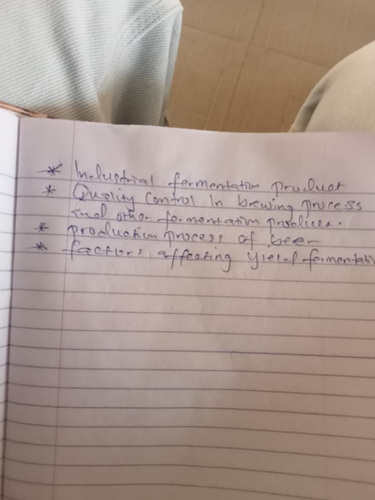 * Industrial fermentation product
* Quality control in brewing process
and other fermentation process.
* production process of beer
* factors affecting yield fermentation